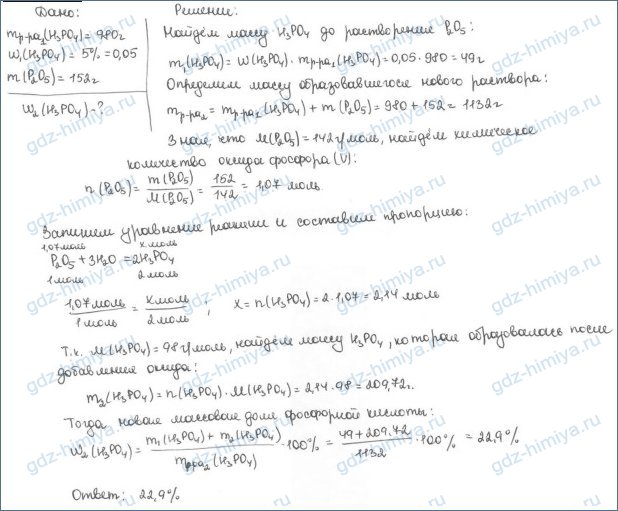 Дано:
Решение:
mр-ра₁(H₃PO₄) = 980г
w₁(H₃PO₄) = 5% = 0,05
m(P₂O₅) = 152г
w₂(H₃PO₄) - ?
Найдём массу H₃PO₄ до растворения P₂O₅:
m₁(H₃PO₄) = w(H₃PO₄) · mр-ра₁(H₃PO₄) = 0,05 · 980 = 49г
Определим массу образовавшегося нового раствора:
mр-ра₂ = mр-ра₁(H₃PO₄) + m(P₂O₅) = 980 + 152 = 1132г
Зная, что M(P₂O₅) = 142г/моль, найдём химическое
количество оксида фосфора (V):
n(P₂O₅) = m(P₂O₅)/M(P₂O₅) = 152/142 = 1,07 моль.
Запишем уравнение реакции и составим пропорцию:
1,07моль x моль
P₂O₅ + 3H₂O = 2H₃PO₄
1 моль 2 моль
1,07моль/1 моль = x моль/2 моль ; x = n(H₃PO₄) = 2 · 1,07 = 2,14 моль
Т.к. M(H₃PO₄) = 98г/моль, найдём массу H₃PO₄, которая образовалась после
добавления оксида:
m₂(H₃PO₄) = n(H₃PO₄) · M(H₃PO₄) = 2,14 · 98 = 209,72г.
Тогда новая массовая доля фосфорной кислоты:
w₂(H₃PO₄) = m₁(H₃PO₄) + m₂(H₃PO₄)/mр-ра₂(H₃PO₄) · 100% = 49 + 209,72/1132 · 100% = 22,9%
Ответ: 22,9%
gdz-himiya.ru